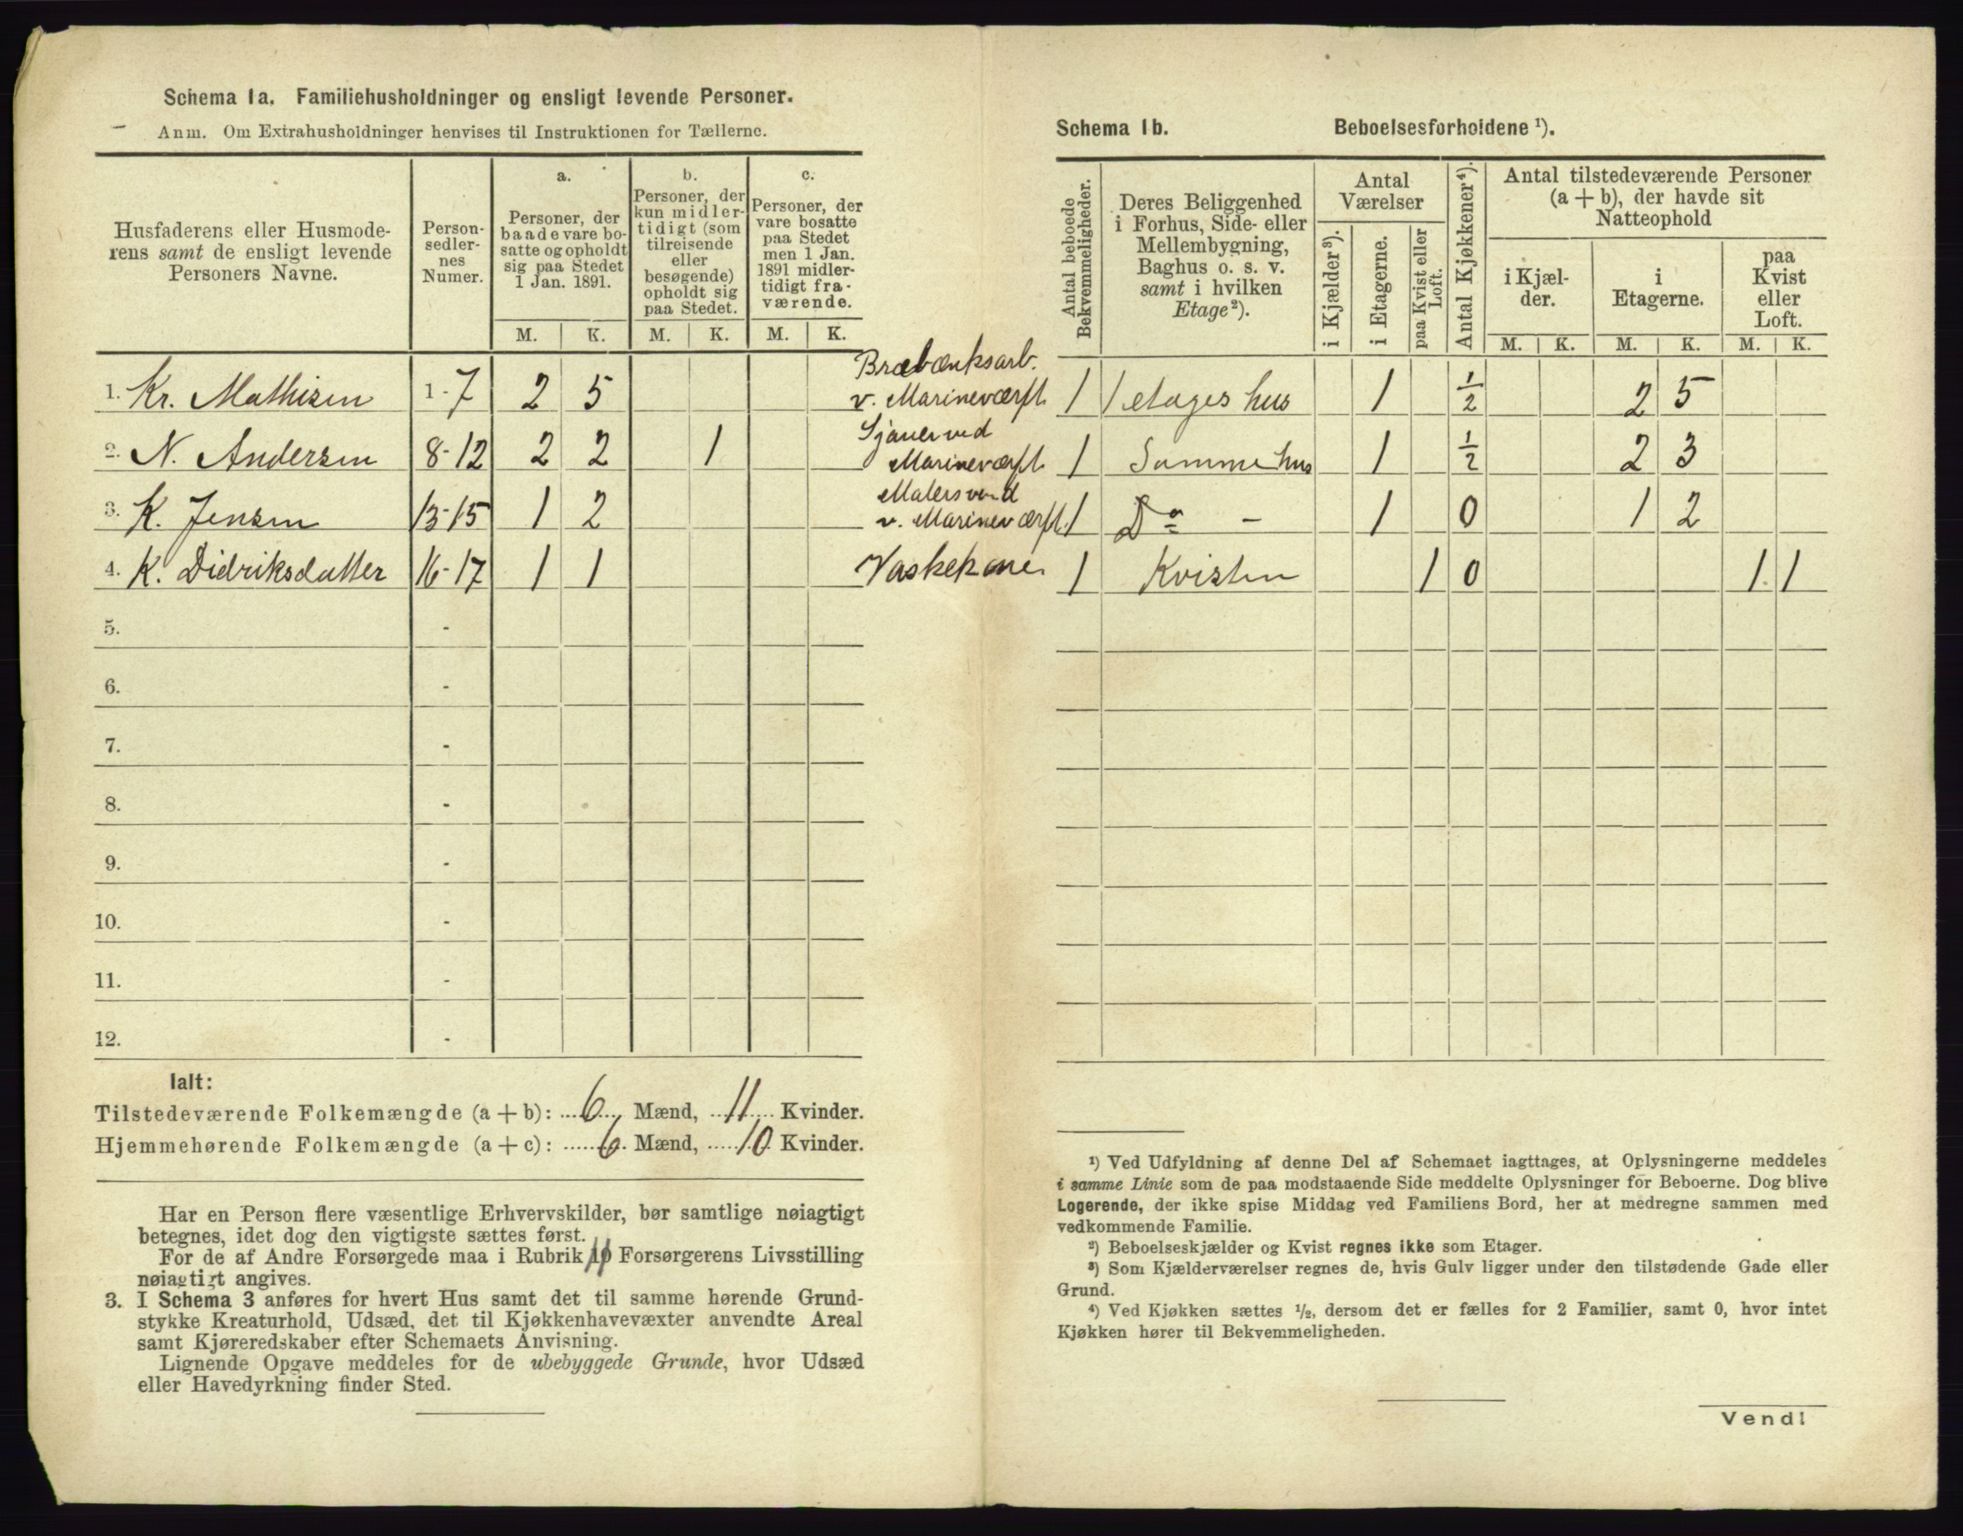 Schema 1a. Familiehusholdninger og ensligt levende Personer.
Anm. Om Extrahusholdninger henvises til Instruktionen for Tællerne.
Husfaderens eller Husmode-
rens samt de ensligt levende
Personers Navne.
Person-
sedler-
nes
Numer.
a.
Personer, der
baade vare bo-
satte og opholdt
sig paa Stedet
1 Jan. 1891.
b.
Personer, der
kun midler-
tidigt (som
tilreisende
eller
besøgende)
opholdt sig
paa Stedet.
c.
Personer, der
vare bosatte
paa Stedet
men 1 Jan.
1891 midler-
tidigt fra-
værende.
M. K. M. K. M. K.
1. Kr. Mathisen 1-7 2 5 Bræbænksarb.
v. Marineværft.
2. N. Andersen 8-12 2 2 1 Sjauer ved
Marineværft.
3. K. Jensen 13-15 1 2 Malersvend
v. Marineværft.
4. K. Didriksdatter 16-17 1 1 Vaskekone.
5. -
6. -
7. -
8. -
9. -
10. -
11. -
12. -
Ialt:
Tilstedeværende Folkemængde (a + b): 6 Mænd, 11 Kvinder.
Hjemmehørende Folkemængde (a + c): 6 Mænd, 10 Kvinder.
Har en Person flere væsentlige Erhvervskilder, bør samtlige nøiagtigt
betegnes, idet dog den vigtigste sættes først.
For de af Andre Forsørgede maa i Rubrik 11 Forsørgerens Livsstilling
nøiagtigt angives.
3. I Schema 3 anføres for hvert Hus samt det til samme hørende Grund-
stykke Kreaturhold, Udsæd, det til Kjøkkenhavevæxter anvendte Areal
samt Kjøreredskaber efter Schemaets Anvisning.
Lignende Opgave meddeles for de ubebyggede Grunde, hvor Udsæd
eller Havedyrkning finder Sted.
Schema 1b. Beboelsesforholdene ¹).
Antal beboede
Bekvemmeligheder.
Deres Beliggenhed
i Forhus, Side- eller
Mellembygning,
Baghus o. s. v.
samt i hvilken
Etage²).
Antal
Værelser
i Kjælder³).
i Etagerne.
paa Kvist eller
Loft.
Antal Kjøkkener⁴).
Antal tilstedeværende Personer
(a + b), der havde sit
Natteophold
i Kjæl-
der.
i
Etagerne.
paa
Kvist
eller
Loft.
M. K. M. K. M. K.
1 1 etages hus 1 ½ 2 5
1 Samme hus 1 ½ 2 3
1 Do - 1 0 1 2
1 Kvisten 1 0 1 1
¹) Ved Udfyldning af denne Del af Schemaet iagttages, at Oplysningerne meddeles
i samme Linie som de paa modstaaende Side meddelte Oplysninger for Beboerne. Dog blive
Logerende, der ikke spise Middag ved Familiens Bord, her at medregne sammen med
vedkommende Familie.
²) Beboelseskjælder og Kvist regnes ikke som Etager.
³) Som Kjælderværelser regnes de, hvis Gulv ligger under den tilstødende Gade eller
Grund.
⁴) Ved Kjøkken sættes ½, dersom det er fælles for 2 Familier, samt 0, hvor intet
Kjøkken hører til Bekvemmeligheden.
Vend!